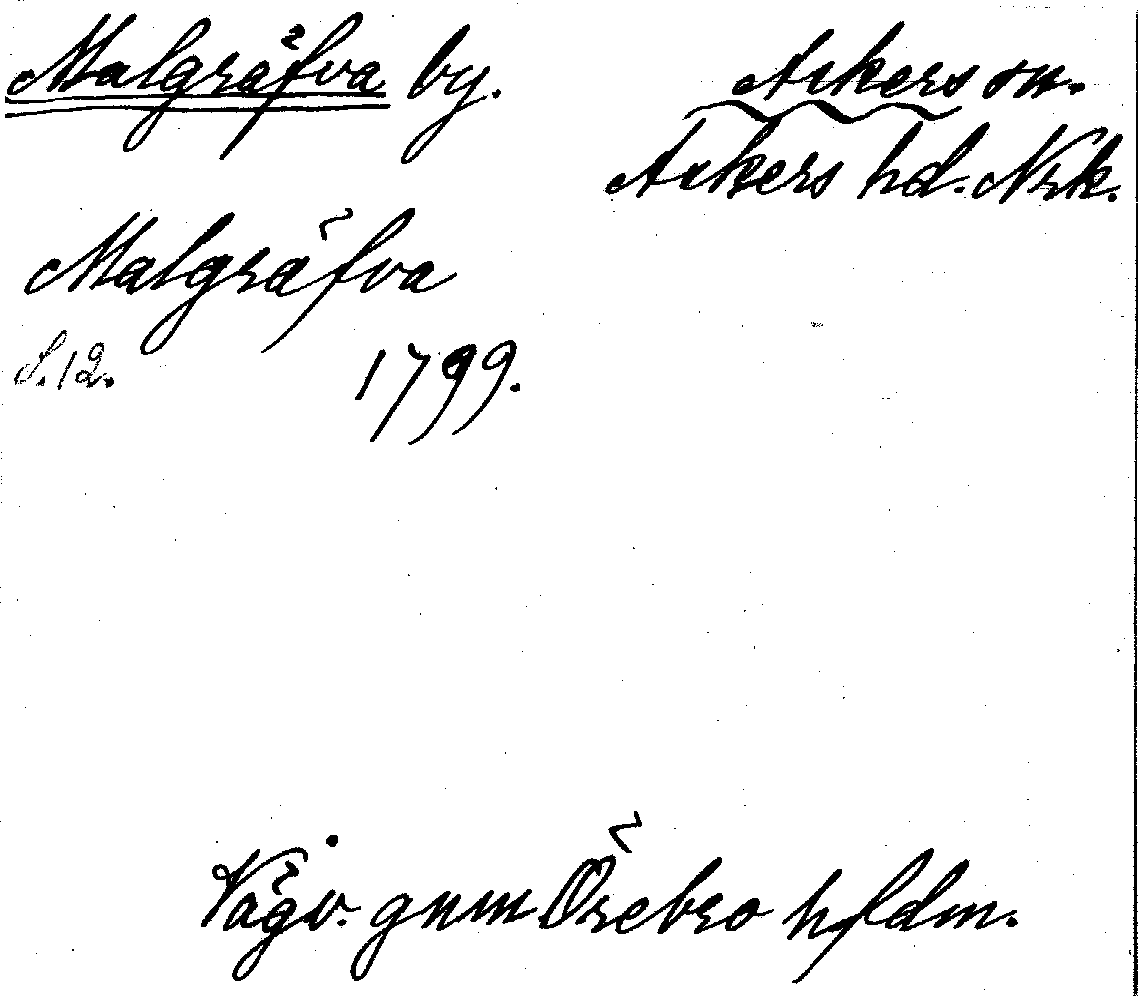 Malgräfva by. Askers sn.
Askers hd. Nrk.
Malgräfva
S. 12. 1799.
Vägv. gnm Örebro hfdm.